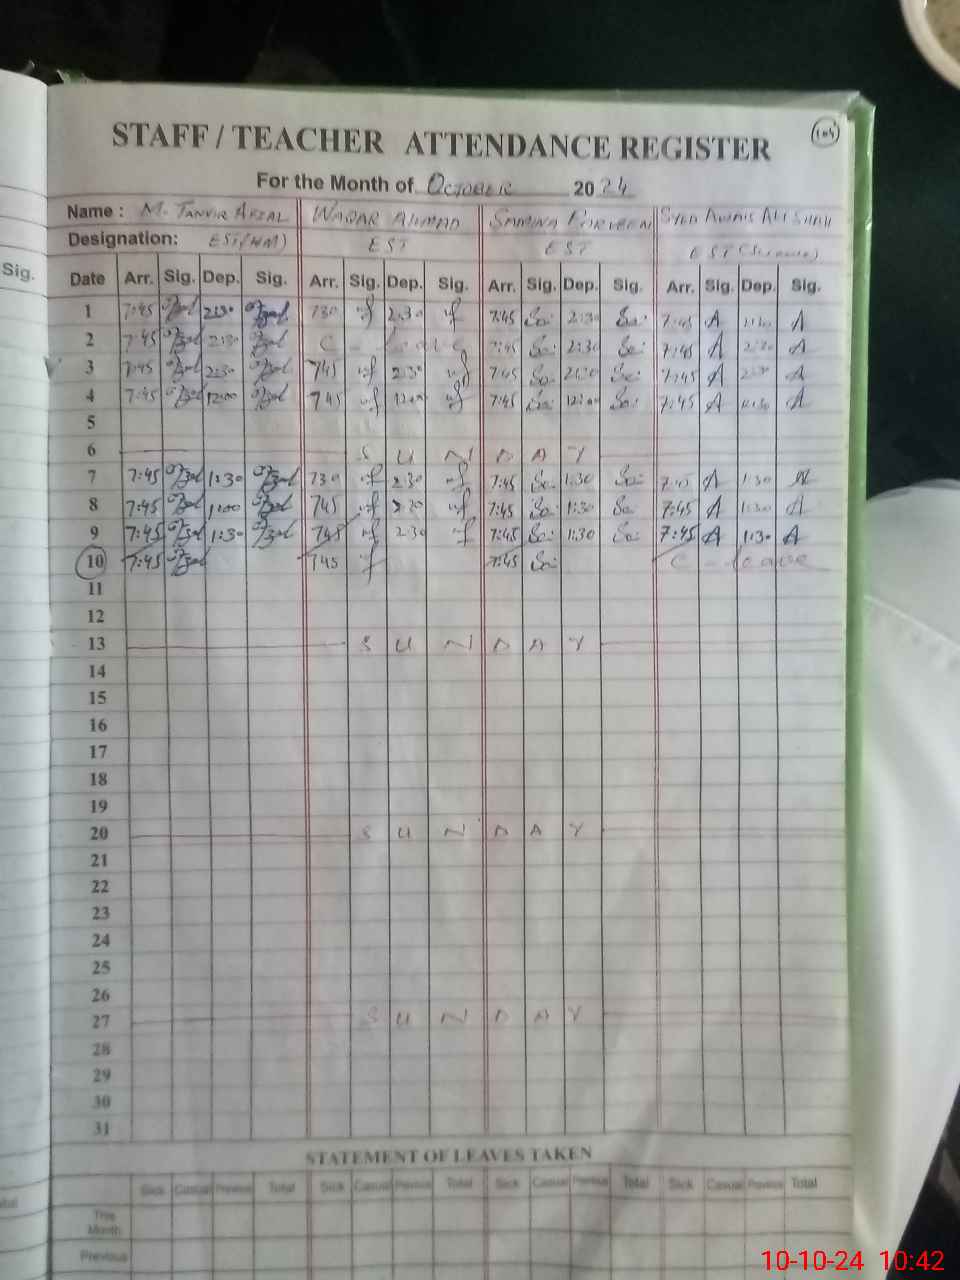 104
STAFF / TEACHER ATTENDANCE REGISTER
For the Month of October 2024
Name : M. TANVIR AFZAL WAQAR AHMAD SAMINA PARVEEN SYED AWAIS ALI SHAH
Designation: EST(HM) EST EST EST (Science)
Sig. Date Arr. Sig. Dep. Sig. Arr. Sig. Dep. Sig. Arr. Sig. Dep. Sig. Arr. Sig. Dep. Sig.
1 7:45 2:30 730 2:30 7:45 Sa: 2:30 Sa: 7:45 A A
2 7:45 2:30 C - leave 7:45 Sa: 2:30 Sa: 7:45 A 2:30 A
3 7:45 2:30 745 2:30 7:45 Sa: 2:30 Sa: 7:45 A 2:30 A
4 7:45 12:00 745 12:00 7:45 Sa: 12:00 Sa: 7:45 A A
5
6 S U N D A Y
7 7:45 1:30 730 2:30 7:45 Sa: 1:30 Sa: 7:45 A 1:30 A
8 7:45 1:00 745 2:30 7:45 Sa: 1:30 Sa: 7:45 A 1:30 A
9 7:45 1:30 745 2:30 7:45 Sa: 1:30 Sa: 7:45 A 1:30 A
10 7:45 745 7:45 Sa: C - leave
11
12
13 S U N D A Y
14
15
16
17
18
19
20 S U N D A Y
21
22
23
24
25
26
27 S U N D A Y
28
29
30
31
STATEMENT OF LEAVES TAKEN
Sick Casual Previous Total Sick Casual Previous Total Sick Casual Previous Total Sick Casual Previous Total
This Month
Previous
10-10-24 10:42